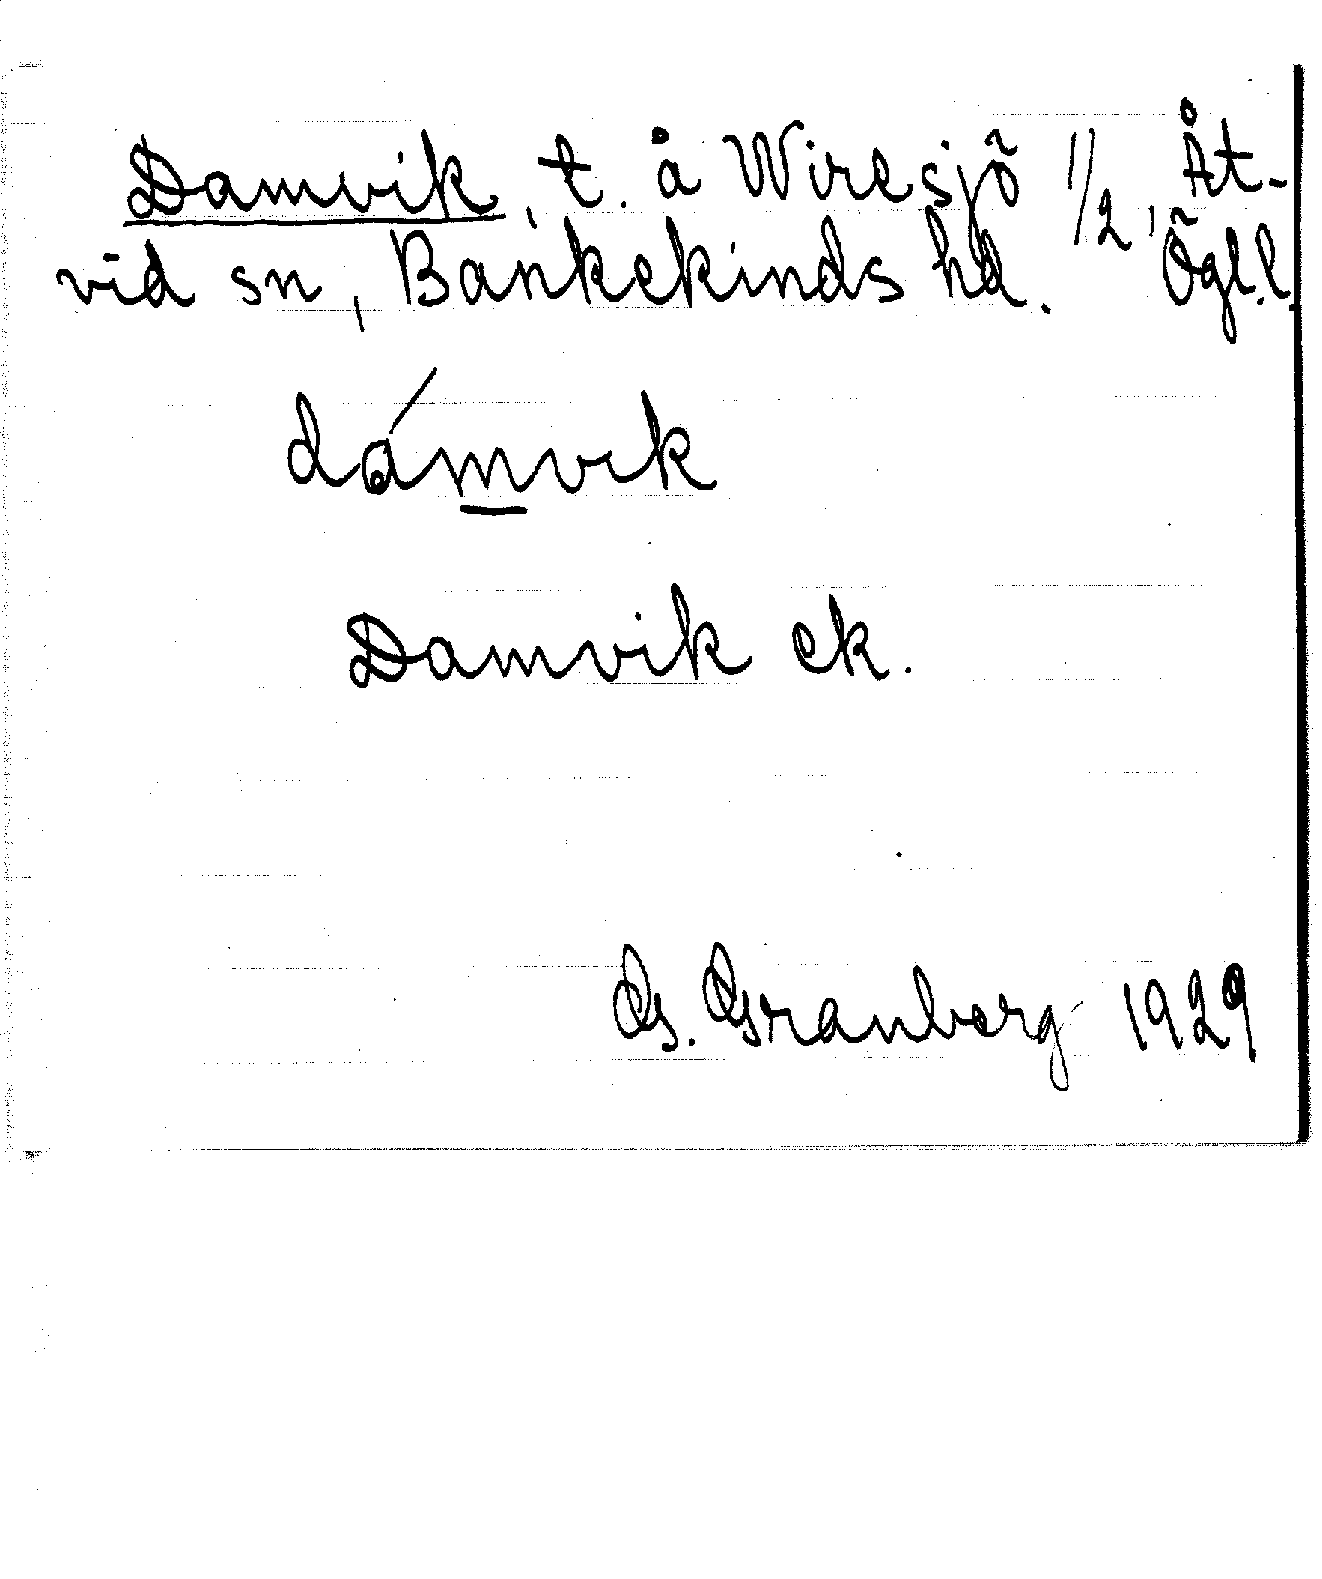 Damvik, t. å Wiresjö 1/2, Åt-
vid sn, Bankekinds hd. Ögl.l.
dámvik
Damvik ek.
G. Granberg 1929